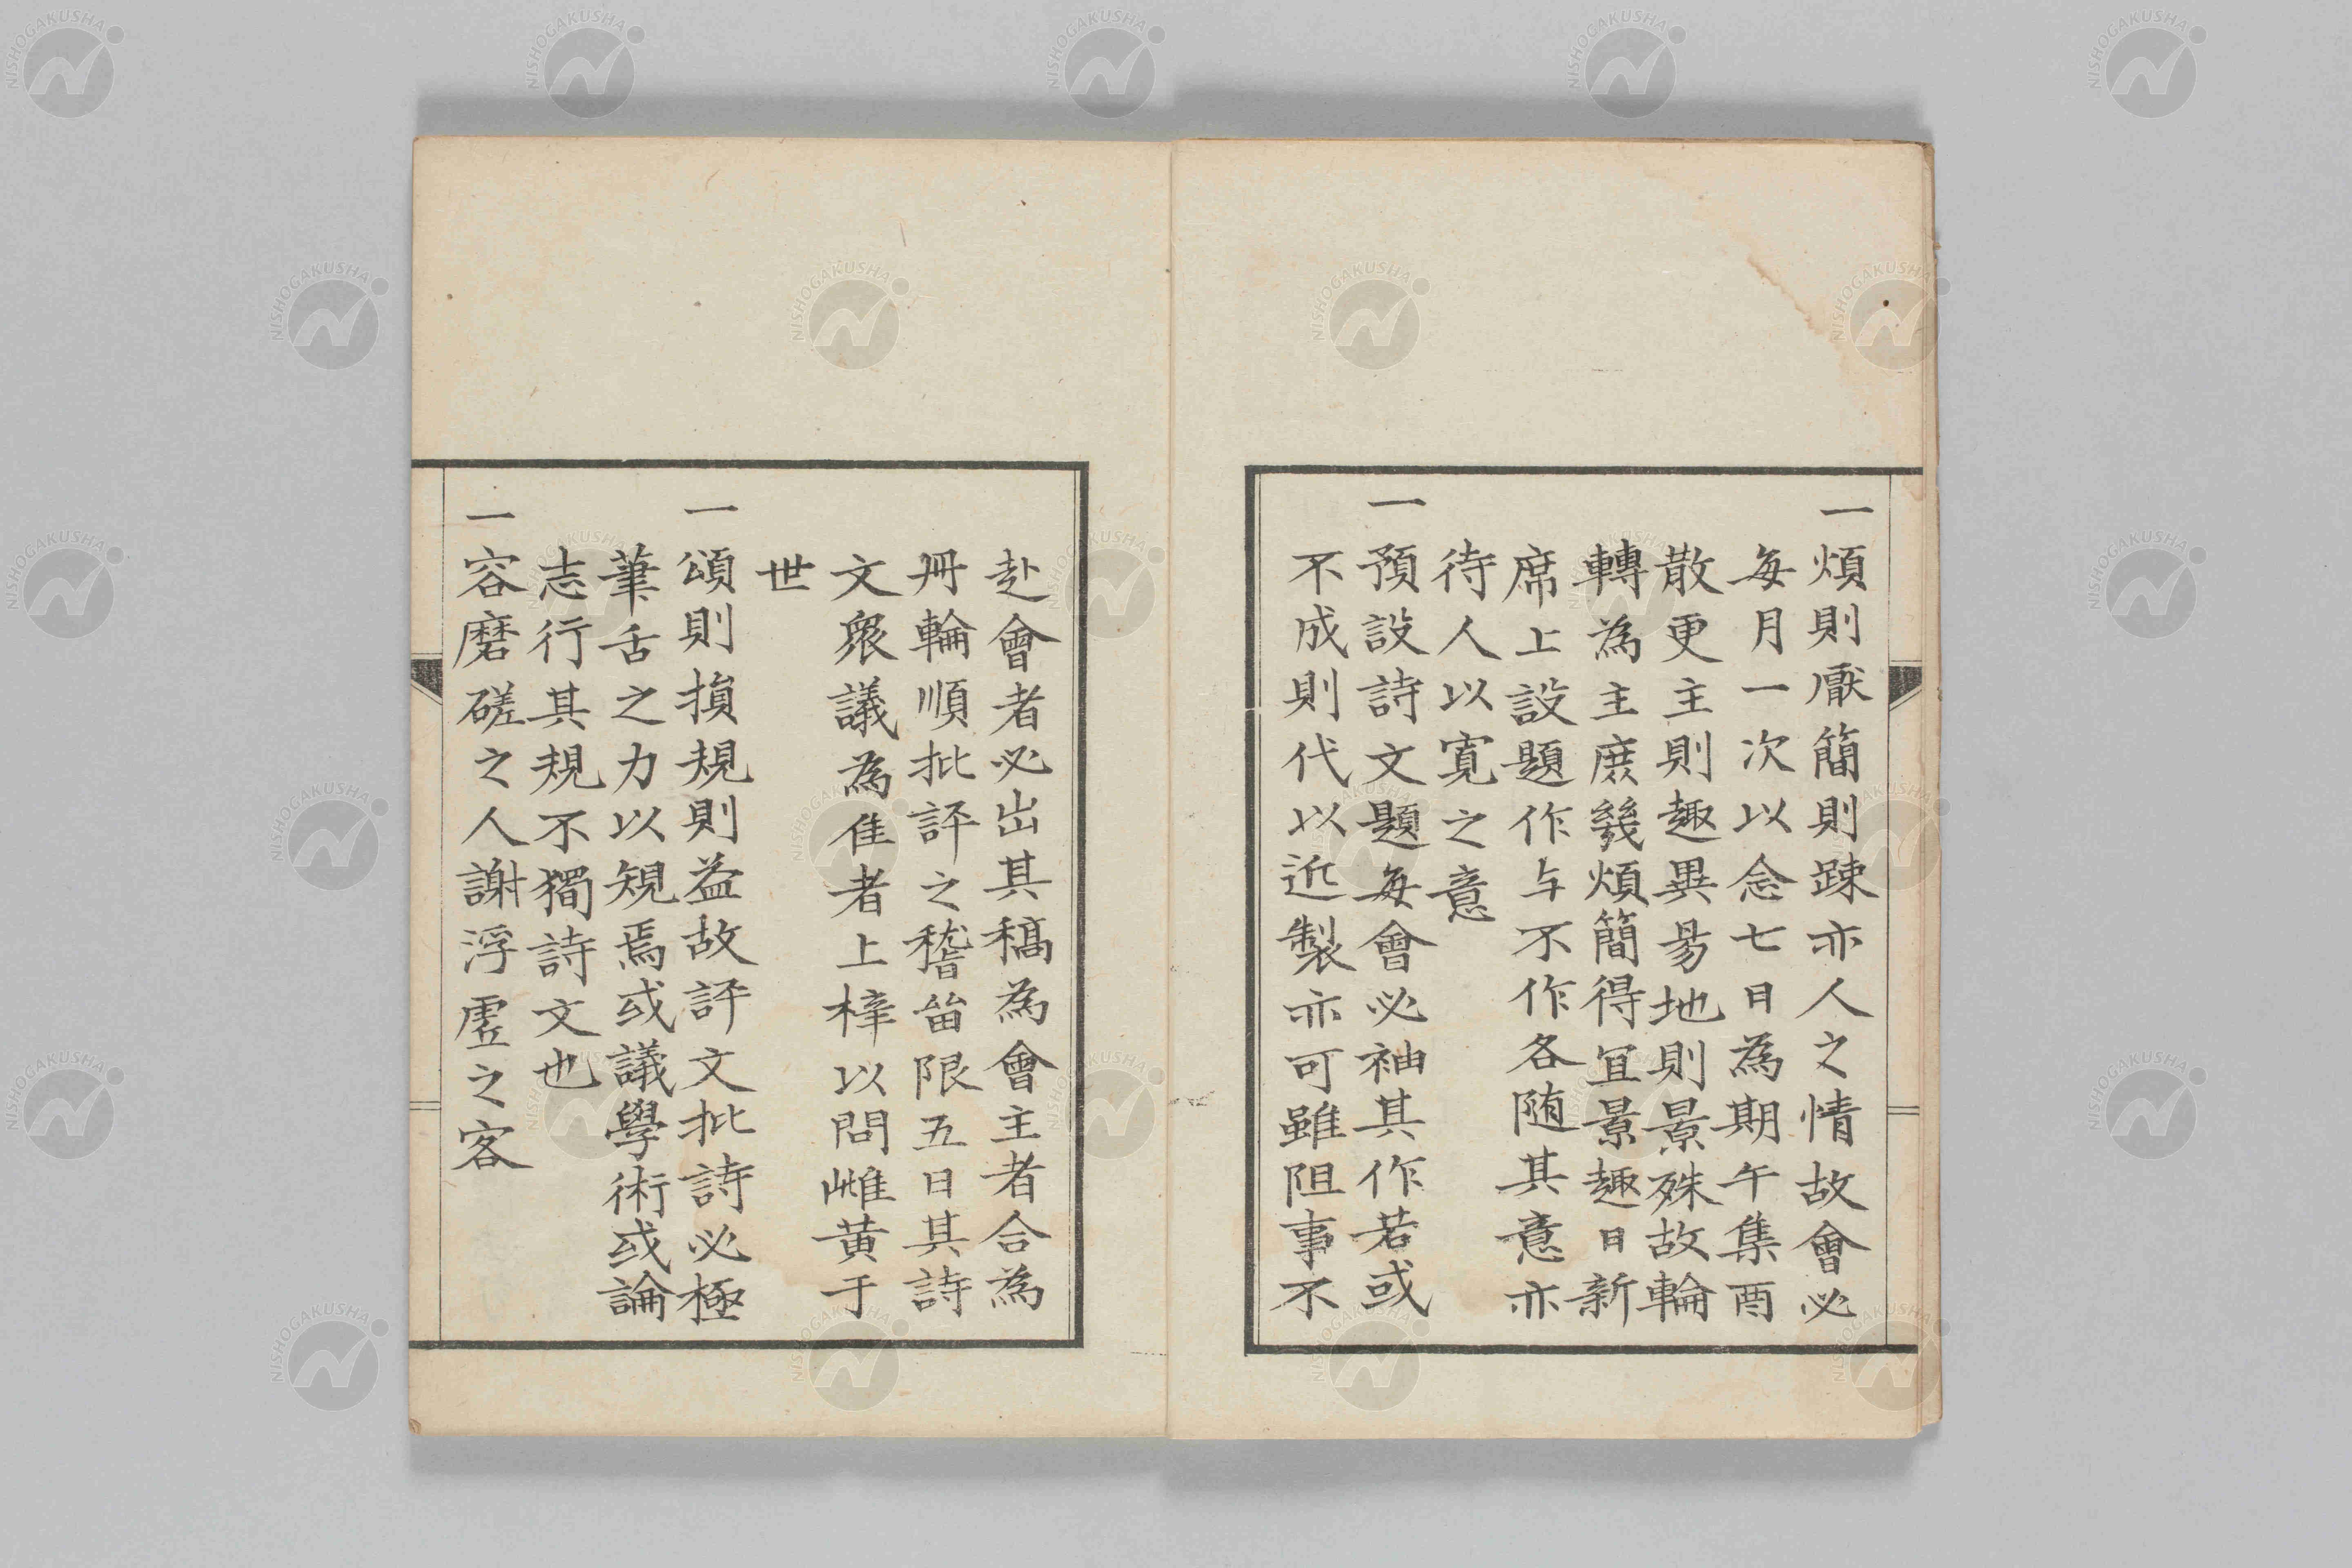 一煩則厭簡則踈亦人之情故會必
每月一次以念七日為期午集酉
散更主則趣異易地則景殊故輪
轉為主庶幾煩簡得宜景趣日新
席上設題作与不作各随其意亦
待人以寛之意
一預設詩文題每會必袖其作若或
不成則代以近製亦可雖阻事不
赴會者必出其稿為會主者合為
冊輪順批評之稽留限五日其詩
文衆議為佳者上梓以問雌黄于
世
一頌則損規則益故評文批詩必極
筆舌之力以規焉或議學術或論
志行其規不獨詩文也
一容磨磋之人謝浮虛之客
NISHOGAKUSHA